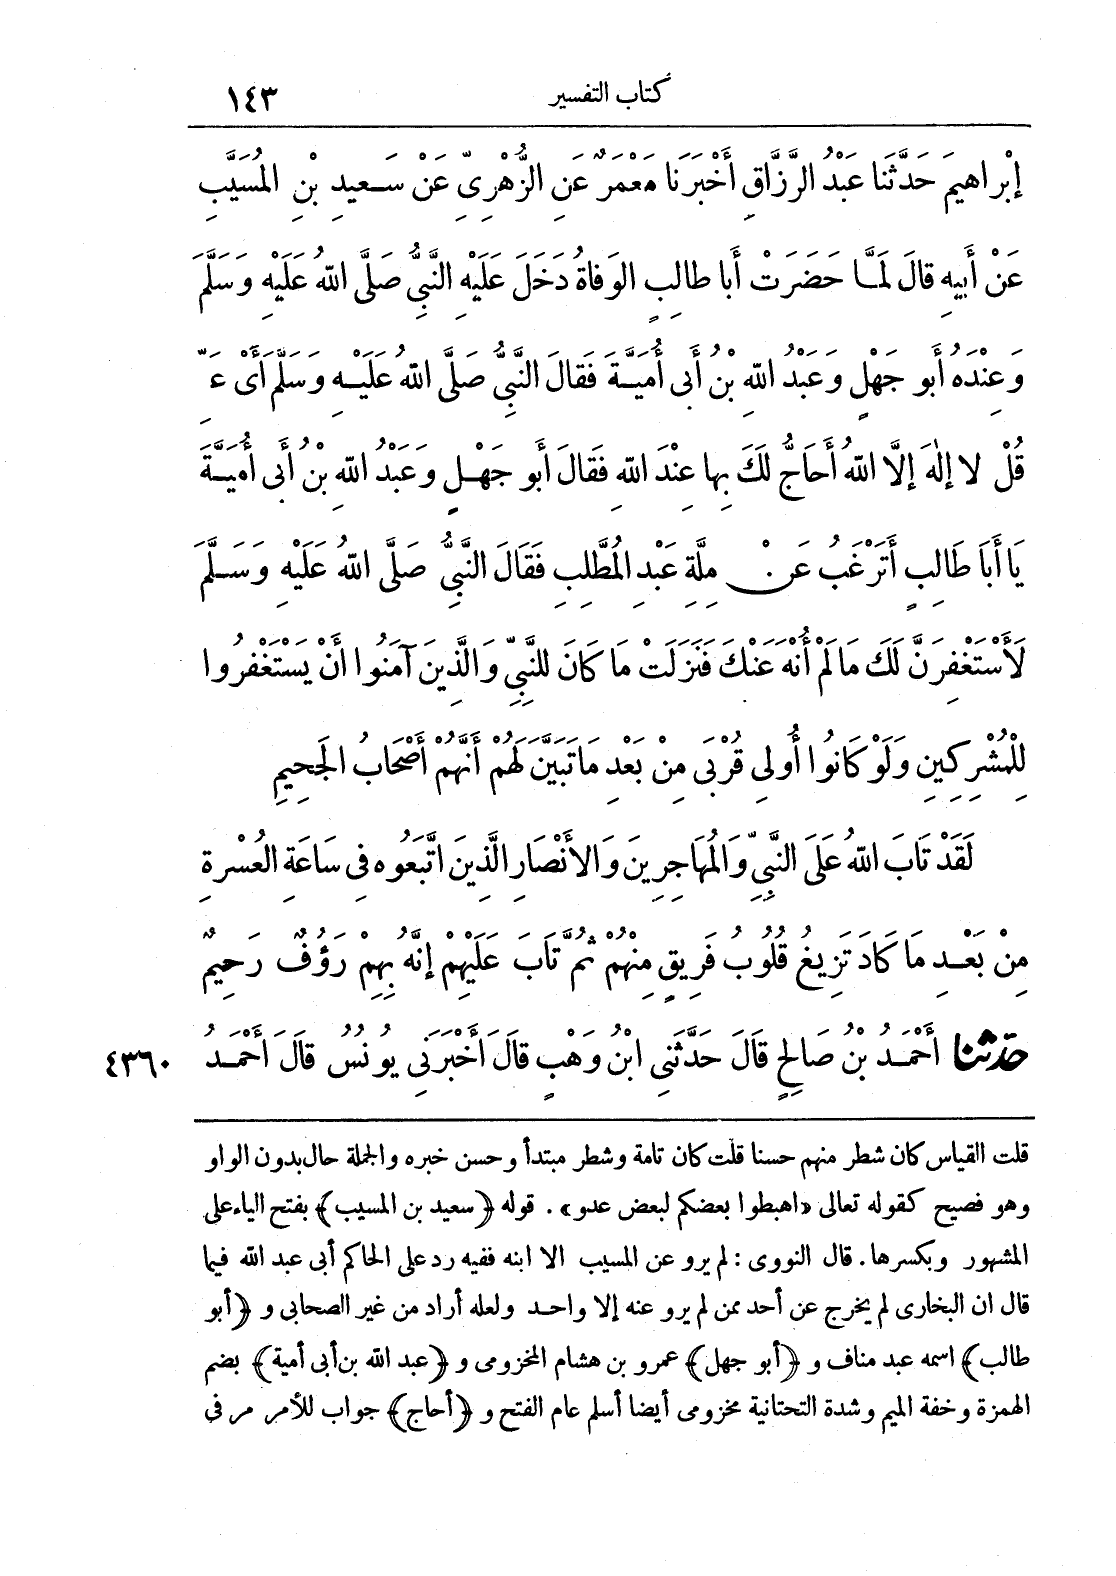 كتاب التفسير ١٤٣
إِبْراهِيمَ حَدَّثَنا عَبْدُ الرَّزَّاقِ أَخْبَرَنا مَعْمَرٌ عَنِ الزُّهْرِيِّ عَنْ سَعِيدِ بْنِ المُسَيَّبِ
عَنْ أَبِيهِ قالَ لَمَّا حَضَرَتْ أَبا طالِبٍ الوَفاةُ دَخَلَ عَلَيْهِ النَّبِيُّ صَلَّى اللهُ عَلَيْهِ وَسَلَّمَ
وَعِنْدَهُ أَبو جَهْلٍ وَعَبْدُ اللهِ بْنُ أَبى أُمَيَّةَ فَقالَ النَّبِيُّ صَلَّى اللهُ عَلَيْهِ وَسَلَّمَ أَىْ عَمِّ
قُلْ لا إِلٰهَ إلَّا اللهُ أُحَاجُّ لَكَ بِها عِنْدَ اللهِ فَقالَ أَبو جَهْلٍ وَعَبْدُ اللهِ بْنُ أَبى أُمَيَّةَ
يَا أَبَا طَالِبٍ أَتَرْغَبُ عَنْ مِلَّةِ عَبْدِ المُطَّلِبِ فَقَالَ النَّبِيُّ صَلَّى اللهُ عَلَيْهِ وَسَلَّمَ
لَأَسْتَغْفِرَنَّ لَكَ مَا لَمْ أُنْهَ عَنْكَ فَنَزَلَتْ مَا كَانَ لِلنَّبِيِّ وَالَّذِينَ آمَنُوا أَنْ يَسْتَغْفِرُوا
لِلْمُشْرِكِينَ وَلَوْ كَانُوا أُولِى قُرْبَى مِنْ بَعْدِ مَا تَبَيَّنَ لَهُمْ أَنَّهُمْ أَصْحَابُ الجَحِيمِ
لَقَدْ تَابَ اللهُ عَلَى النَّبِيِّ وَالمُهَاجِرِينَ وَالأَنْصَارِ الَّذِينَ اتَّبَعُوه فِى سَاعَةِ العُسْرةِ
مِنْ بَعْدِ مَا كَادَ تَزِيغُ قُلُوبُ فَرِيقٍ مِنْهُمْ ثُمَّ تَابَ عَلَيْهِمْ إِنَّهُ بِهِمْ رَؤُفٌ رَحِيمٌ
٤٣٦٠ حَدَّثَنا أَحْمَدُ بْنُ صَالِحٍ قَالَ حَدَّثَنِي ابْنُ وَهْبٍ قَالَ أَخْبَرَنِي يُونُسُ قَالَ أَحْمَدُ
قلت القياس كان شطر منهم حسنا قلت كان تامة وشطر مبتدأ وحسن خبره والجملة حال بدون الواو
وهو فصيح كقوله تعالى «اهبطوا بعضكم لبعض عدو». قوله ﴿سعيد بن المسيب﴾ بفتح الياء على
المشهور وبكسرها. قال النووى : لم يرو عن المسيب الا ابنه ففيه رد على الحاكم أبى عبد الله فيما
قال ان البخارى لم يخرج عن أحد ممن لم يرو عنه إلا واحد ولعله أراد من غير الصحابى و ﴿أبو
طالب﴾ اسمه عبد مناف و ﴿أبو جهل﴾ عمرو بن هشام المخزومى و ﴿عبد الله بن أبى أمية﴾ بضم
الهمزة وخفة الميم وشدة التحتانية مخزومى أيضا أسلم عام الفتح و ﴿أحاج﴾ جواب للأمر مر فى